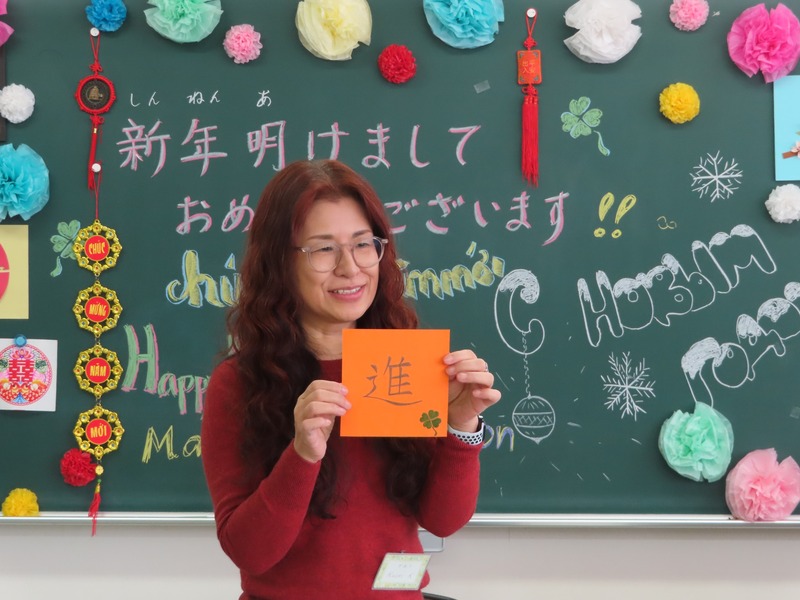 しん ねん あ
新年明けまして
おめ ございます!!
chú mmới
С НОВЫМ
ГОДОМ
Happ
Ma on
進
CHÚC
MỪNG
NĂM
MỚI